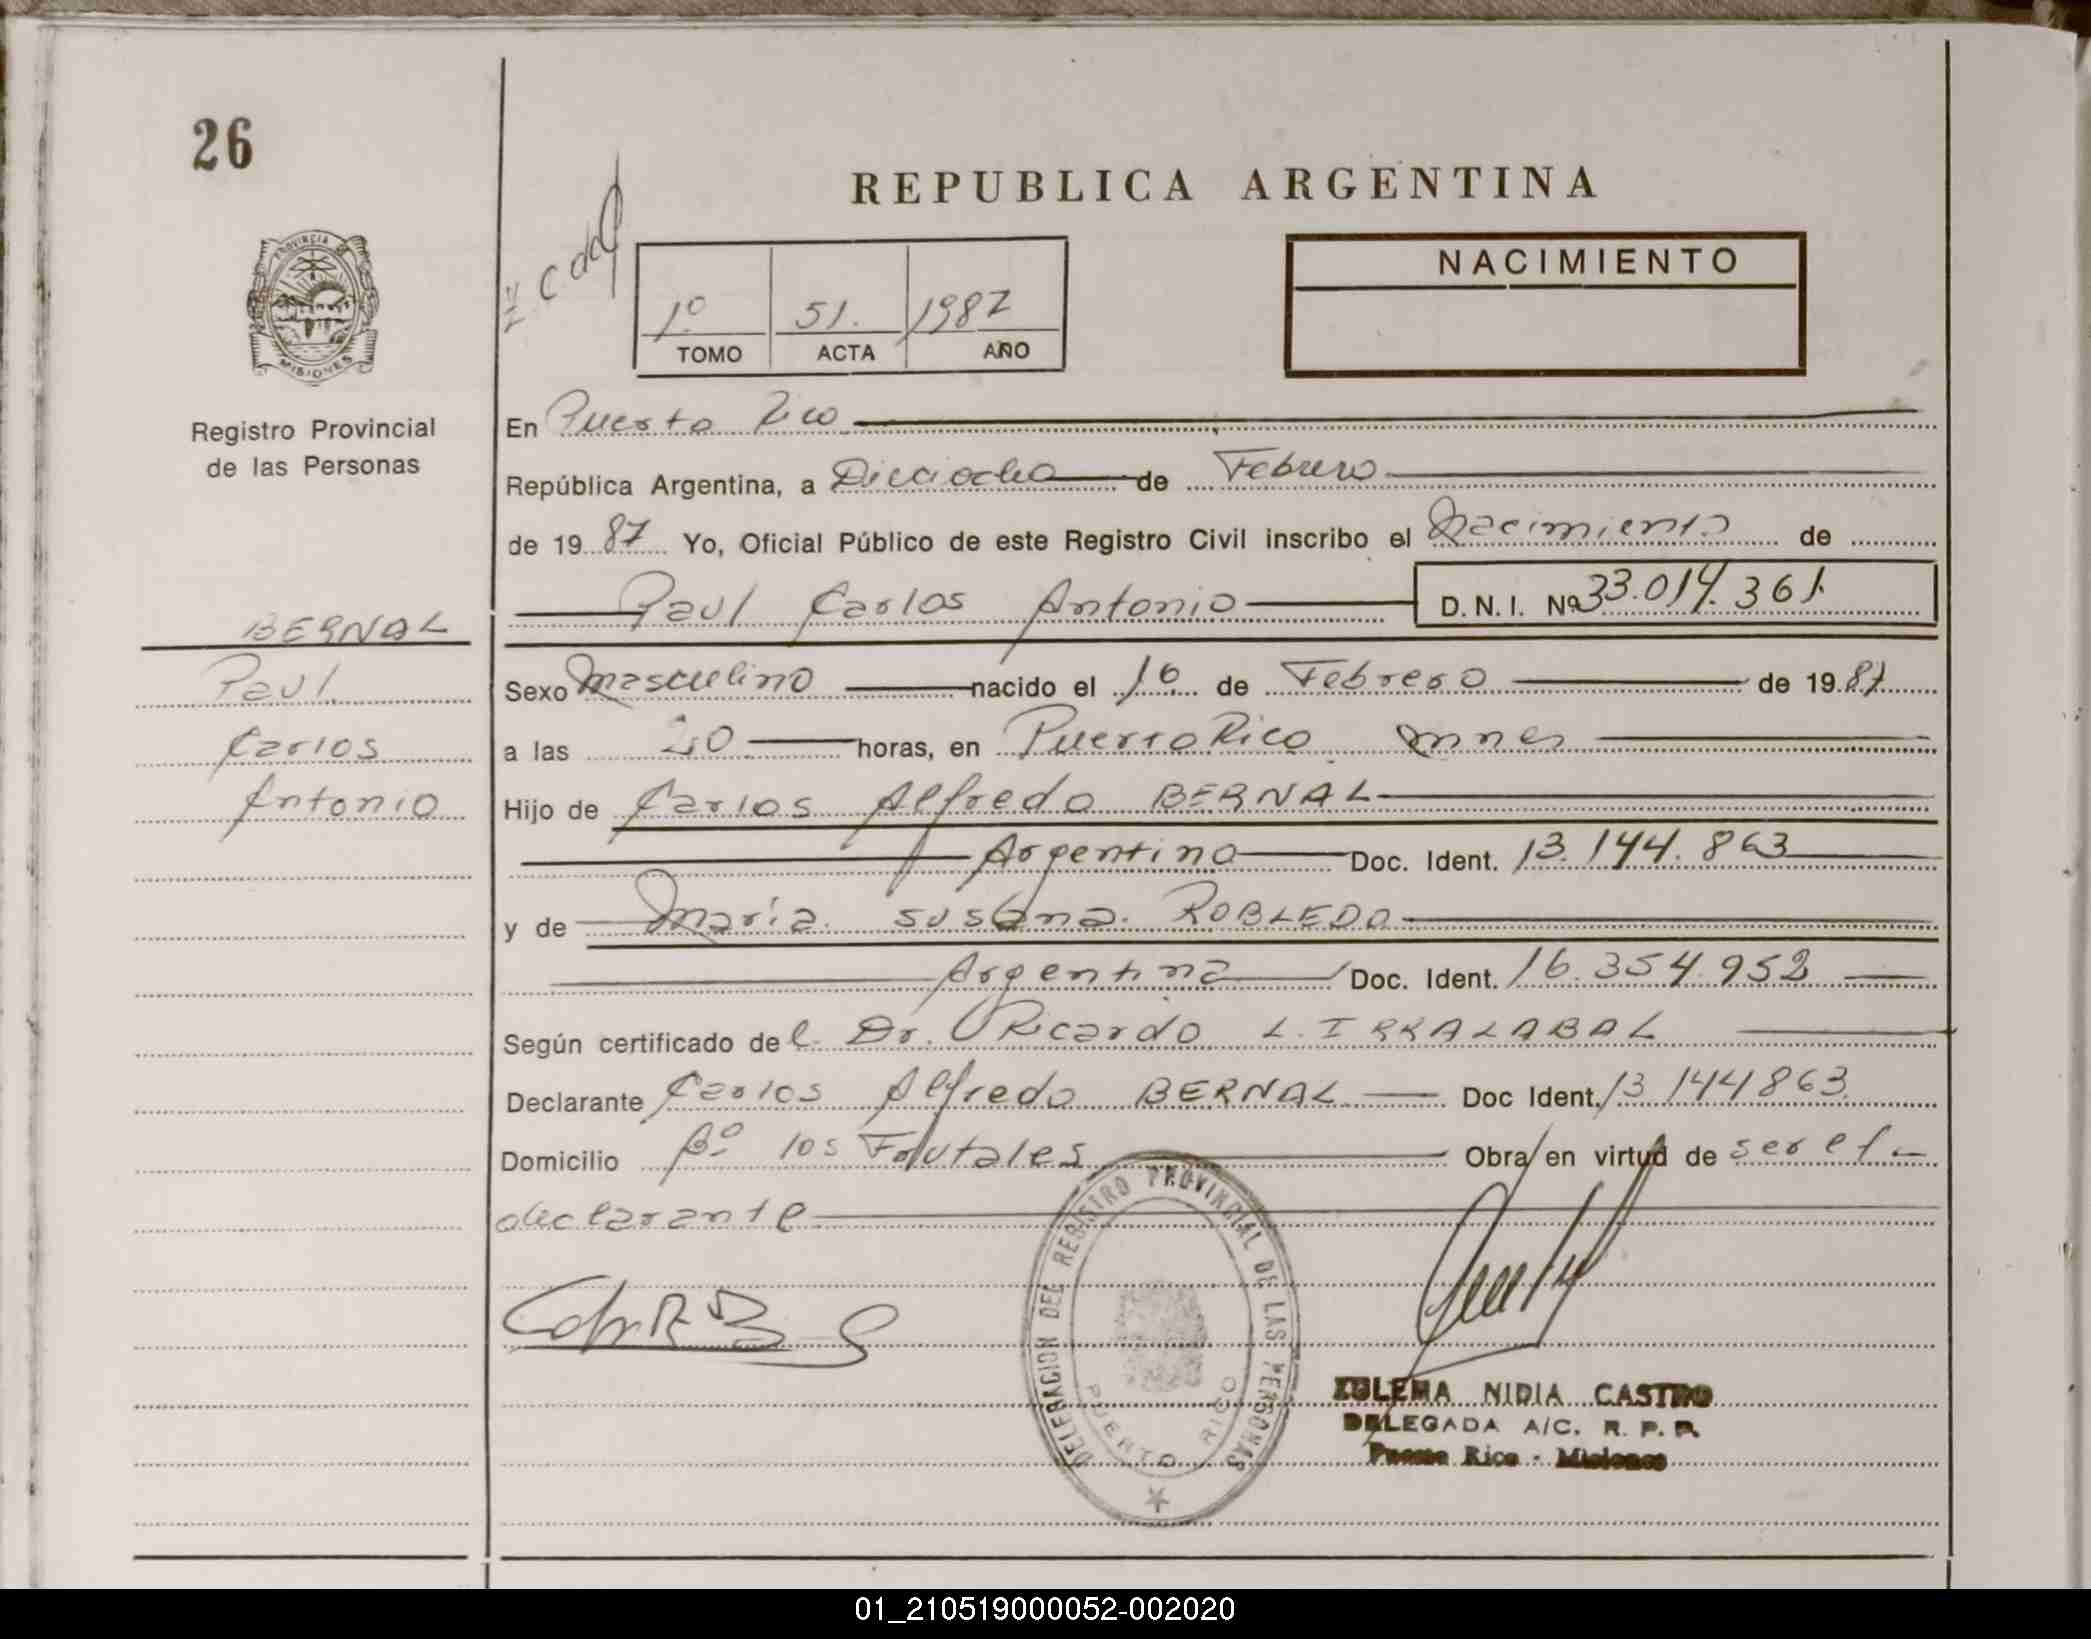 26
REPUBLICA ARGENTINA
PROVINCIA DE
MISIONES
Registro Provincial
de las Personas
NACIMIENTO
1º 51. 1987
TOMO ACTA AÑO
En Puerto Rico
República Argentina, a Dieciocho de Febrero
de 19 87 Yo, Oficial Público de este Registro Civil inscribo el Nacimiento de
Paul Carlos Antonio D.N.I. Nº 33.014.361.
BERNAL
Paul
Carlos
Antonio
Sexo Masculino nacido el 16 de Febrero de 19 87
a las 20 horas, en Puerto Rico Mnes
Hijo de Carlos Alfredo BERNAL
Argentino Doc. Ident. 13.144.863
y de María Susana ROBLEDO
Argentina Doc. Ident. 16.354.952
Según certificado del Dr. Ricardo L. IRRALABAL
Declarante Carlos Alfredo BERNAL Doc Ident. 13 144 863
Domicilio Bº los Frutales Obra en virtud de ser el
declarante
DELEGACION DEL REGISTRO PROVINCIAL DE LAS PERSONAS
PUERTO RICO
ZULEMA NIDIA CASTRO
DELEGADA A/C. R. P. P.
Puerto Rico - Misiones
01_210519000052-002020